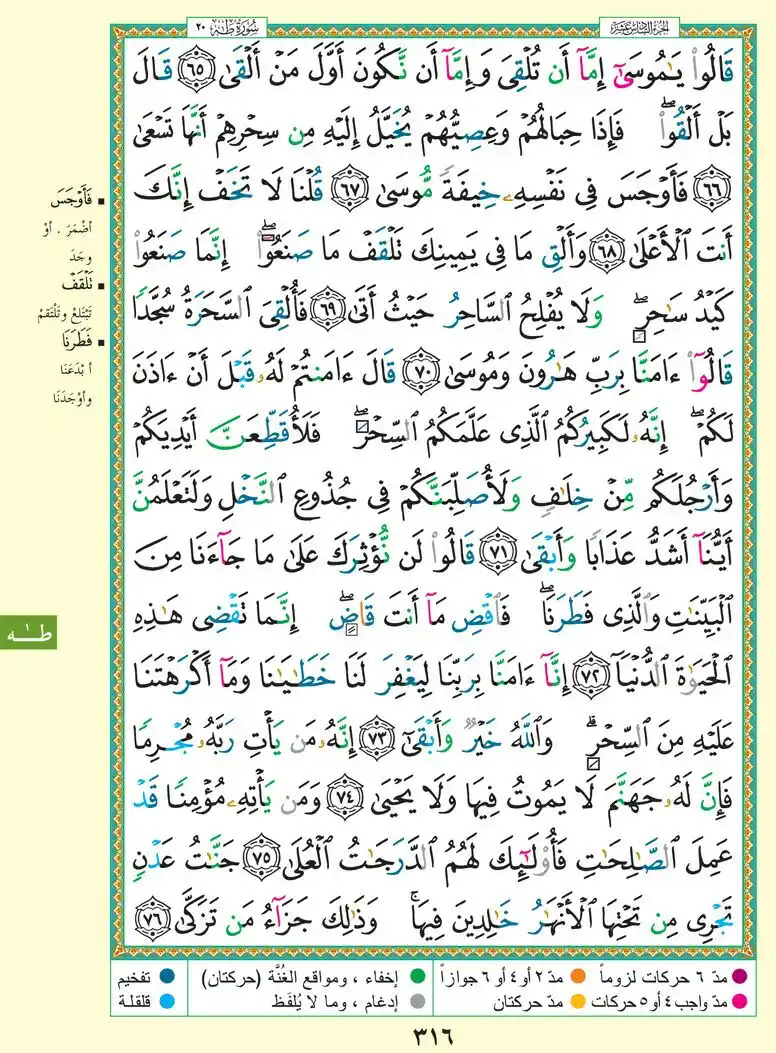 الجزء السادس عشر
سُورَةُ طه ٢٠
قَالُوا۟ يَـٰمُوسَىٰٓ إِمَّآ أَن تُلْقِىَ وَإِمَّآ أَن نَّكُونَ أَوَّلَ مَنْ أَلْقَىٰ ٦٥ قَالَ
بَلْ أَلْقُوا۟ ۖ فَإِذَا حِبَالُهُمْ وَعِصِيُّهُمْ يُخَيَّلُ إِلَيْهِ مِن سِحْرِهِمْ أَنَّهَا تَسْعَىٰ
٦٦ فَأَوْجَسَ فِى نَفْسِهِۦ خِيفَةً مُّوسَىٰ ٦٧ قُلْنَا لَا تَخَفْ إِنَّكَ
أَنتَ ٱلْأَعْلَىٰ ٦٨ وَأَلْقِ مَا فِى يَمِينِكَ تَلْقَفْ مَا صَنَعُوٓا۟ ۖ إِنَّمَا صَنَعُوا۟
كَيْدُ سَـٰحِرٍ ۖ وَلَا يُفْلِحُ ٱلسَّاحِرُ حَيْثُ أَتَىٰ ٦٩ فَأُلْقِىَ ٱلسَّحَرَةُ سُجَّدًا
قَالُوٓا۟ ءَامَنَّا بِرَبِّ هَـٰرُونَ وَمُوسَىٰ ٧٠ قَالَ ءَامَنتُمْ لَهُۥ قَبْلَ أَنْ ءَاذَنَ
لَكُمْ ۖ إِنَّهُۥ لَكَبِيرُكُمُ ٱلَّذِى عَلَّمَكُمُ ٱلسِّحْرَ ۖ فَلَأُقَطِّعَنَّ أَيْدِيَكُمْ
وَأَرْجُلَكُم مِّنْ خِلَـٰفٍ وَلَأُصَلِّبَنَّكُمْ فِى جُذُوعِ ٱلنَّخْلِ وَلَتَعْلَمُنَّ
أَيُّنَآ أَشَدُّ عَذَابًا وَأَبْقَىٰ ٧١ قَالُوا۟ لَن نُّؤْثِرَكَ عَلَىٰ مَا جَآءَنَا مِنَ
ٱلْبَيِّنَـٰتِ وَٱلَّذِى فَطَرَنَا ۖ فَٱقْضِ مَآ أَنتَ قَاضٍ ۖ إِنَّمَا تَقْضِى هَـٰذِهِ
ٱلْحَيَوٰةَ ٱلدُّنْيَآ ٧٢ إِنَّآ ءَامَنَّا بِرَبِّنَا لِيَغْفِرَ لَنَا خَطَـٰيَـٰنَا وَمَآ أَكْرَهْتَنَا
عَلَيْهِ مِنَ ٱلسِّحْرِ ۗ وَٱللَّهُ خَيْرٌ وَأَبْقَىٰٓ ٧٣ إِنَّهُۥ مَن يَأْتِ رَبَّهُۥ مُجْرِمًا
فَإِنَّ لَهُۥ جَهَنَّمَ لَا يَمُوتُ فِيهَا وَلَا يَحْيَىٰ ٧٤ وَمَن يَأْتِهِۦ مُؤْمِنًا قَدْ
عَمِلَ ٱلصَّـٰلِحَـٰتِ فَأُو۟لَـٰٓئِكَ لَهُمُ ٱلدَّرَجَـٰتُ ٱلْعُلَىٰ ٧٥ جَنَّـٰتُ عَدْنٍ
تَجْرِى مِن تَحْتِهَا ٱلْأَنْهَـٰرُ خَـٰلِدِينَ فِيهَا ۚ وَذَٰلِكَ جَزَآءُ مَن تَزَكَّىٰ ٧٦
فَأَوْجَسَ
أضْمَرَ . أوْ
وجَدَ
تَلْقَفْ
تَبْتَلِعُ وتَلْتَقِمُ
فَطَرَنَا
أبْدَعَنَا
وأوْجَدَنَا
طـٰه
مدّ ٦ حركات لزوماً
مدّ ٢ أو ٤ أو ٦ جوازاً
إخفاء ، ومواقع الغُنَّة (حركتان)
تفخيم
مدّ واجب ٤ أو ٥ حركات
مدّ حركتان
إدغام ، وما لا يُلفَظ
قلقلة
٣١٦